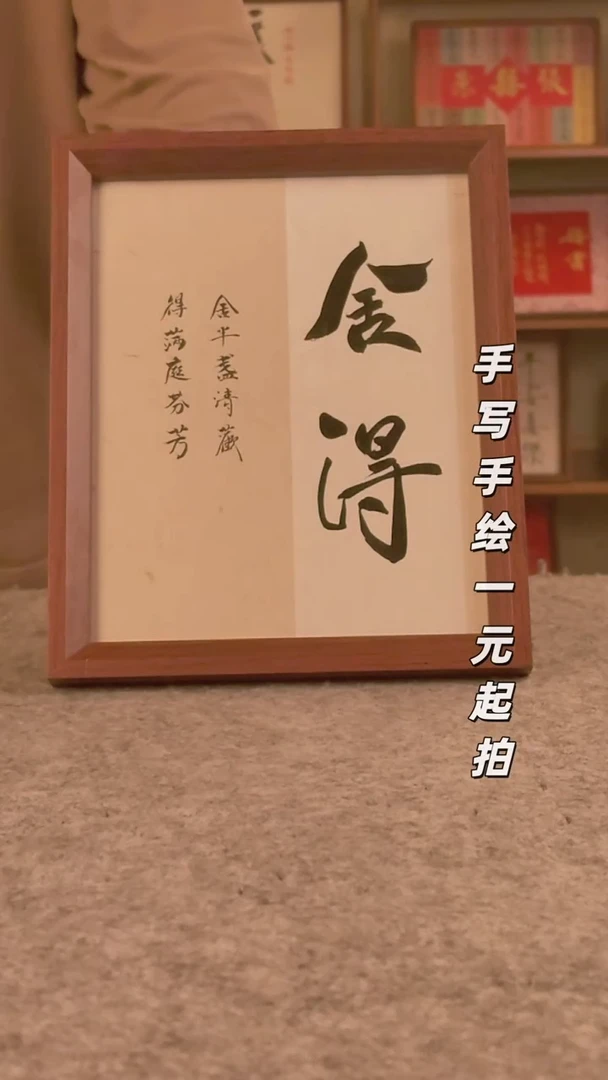 舍得
舍半盏清藏
得满庭芬芳
手写手绘一元起拍